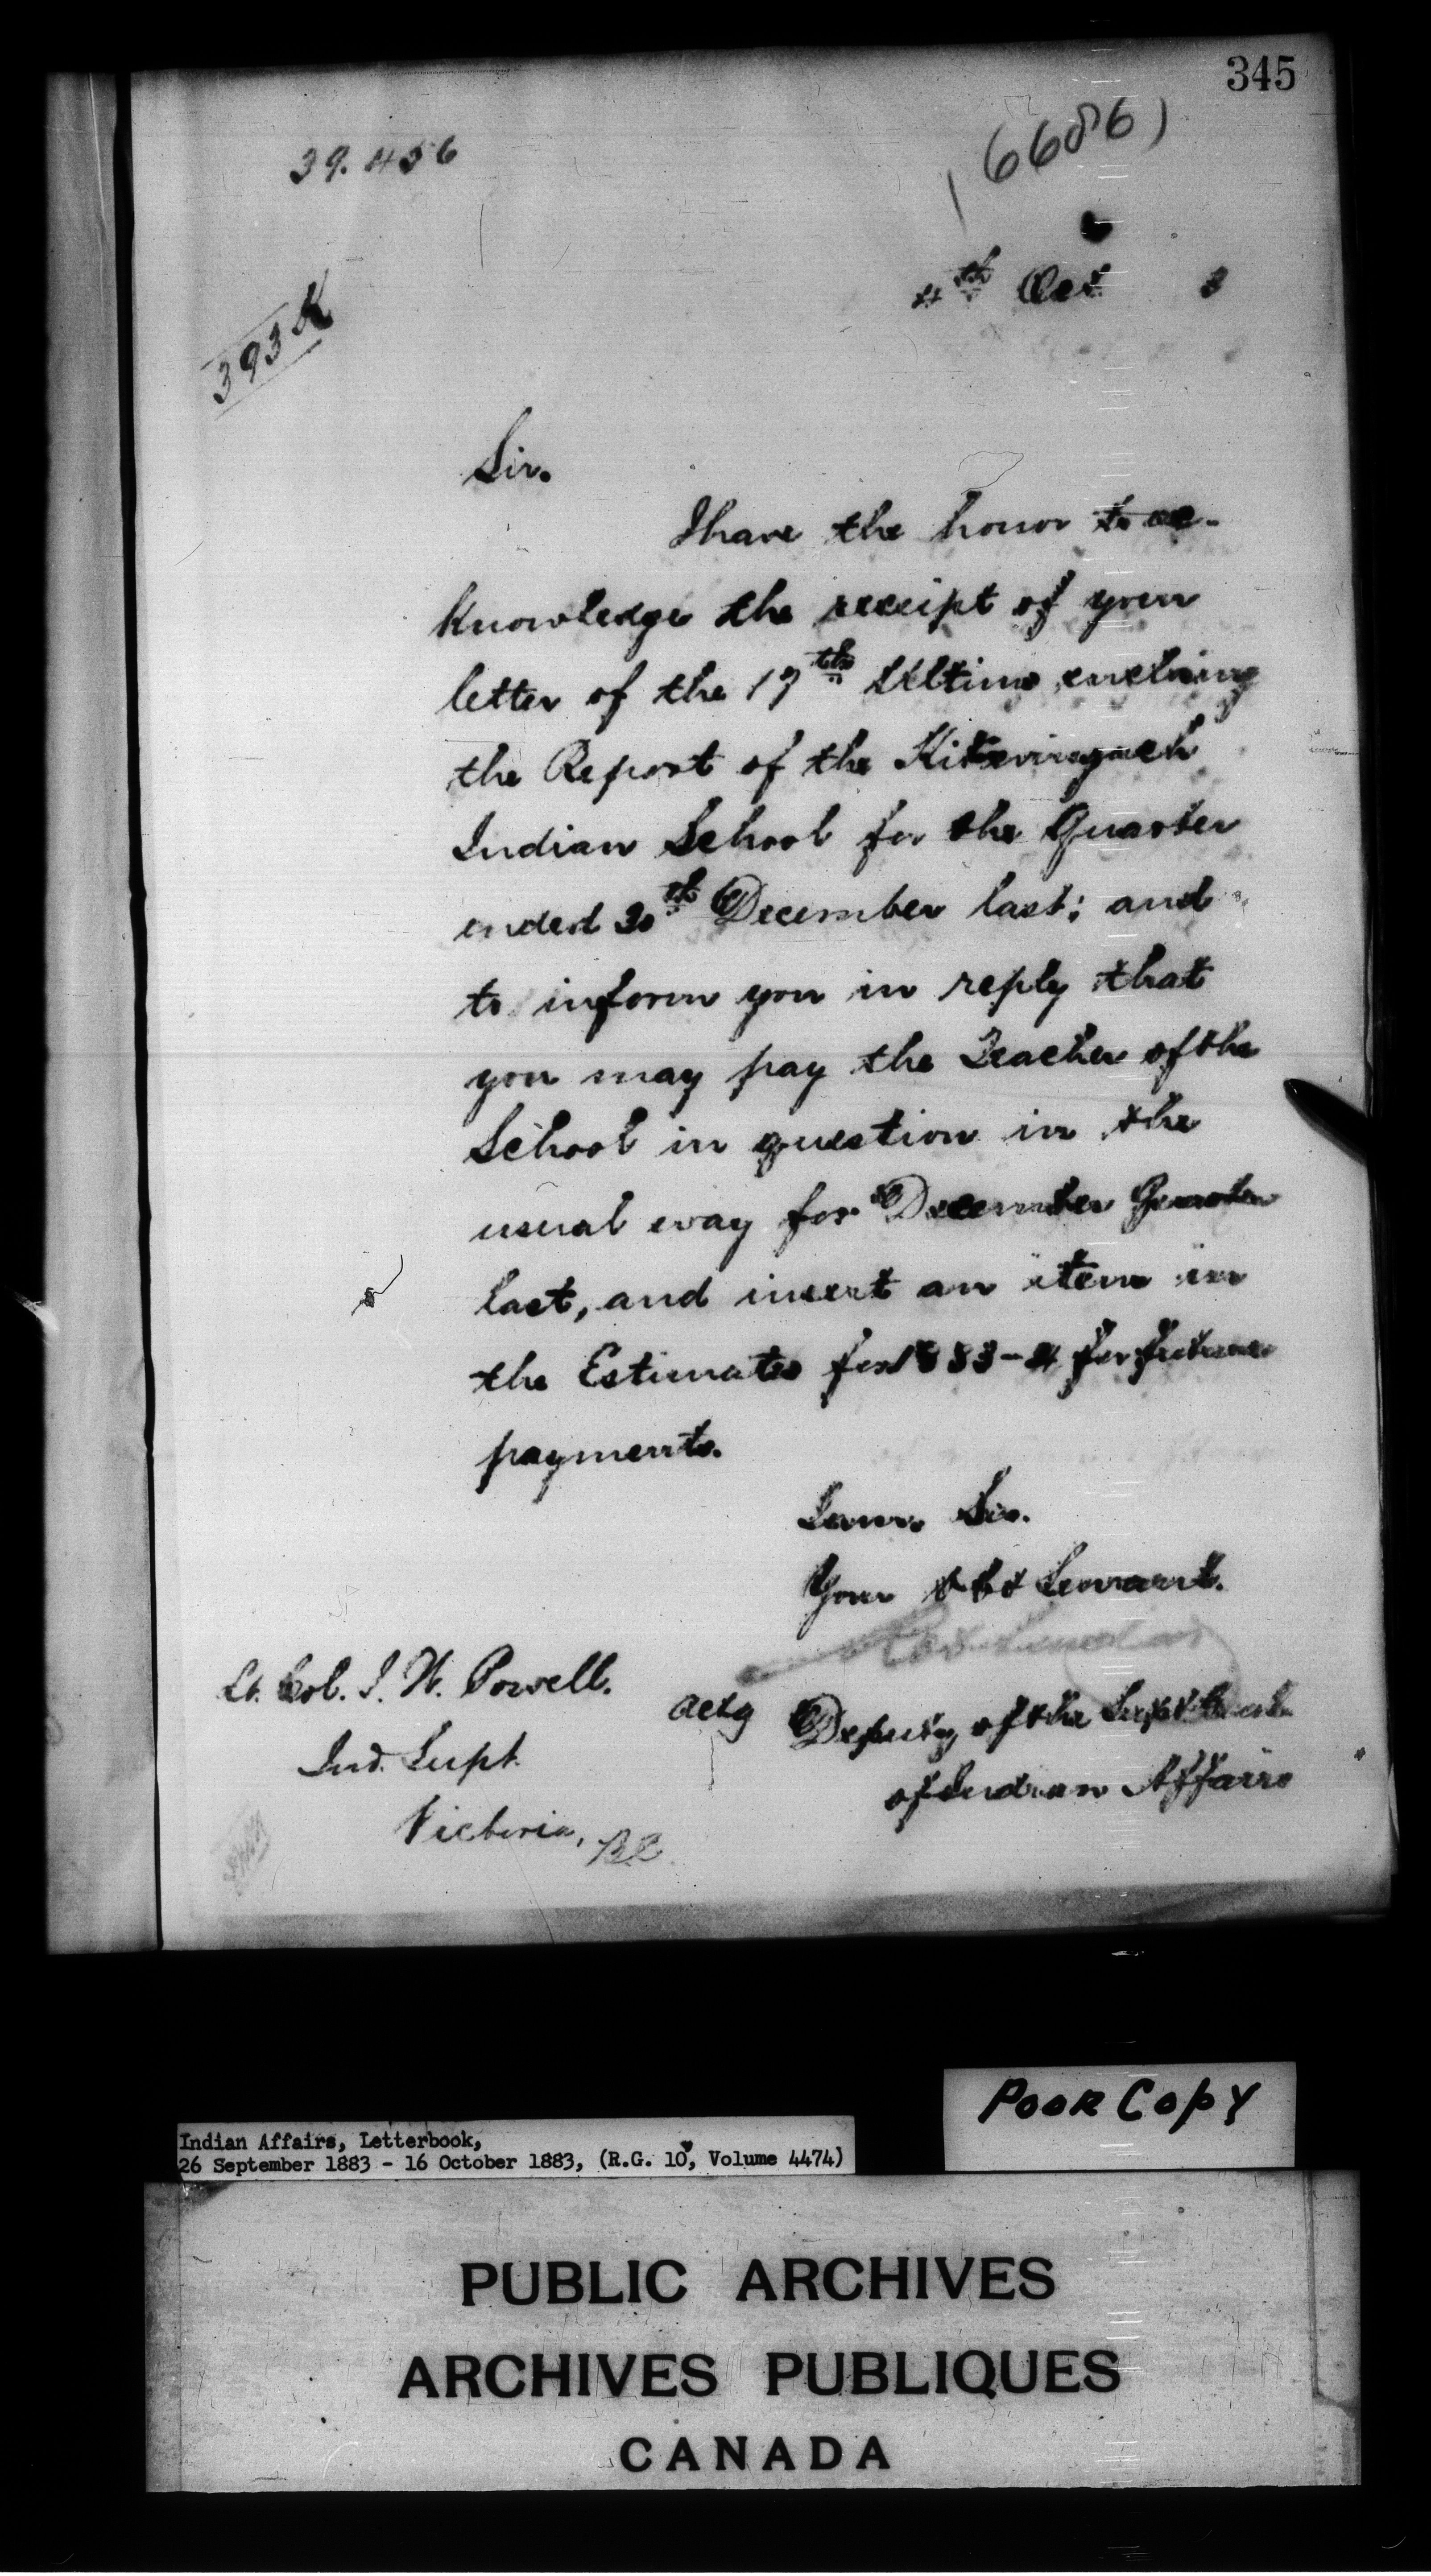 345
39.456
6686
393 K
4th Oct 3
Sir.
I have the honor to ac-
knowledge the receipt of your
letter of the 17th Ultimo enclosing
the Report of the
Indian School for the Quarter
ended 30th December last; and
to inform you in reply that
you may pay the Teacher of the
School in question in the
usual way for December Quarter
last, and insert an item in
the Estimates for 1883-4 for future
payments.
I am, Sir.
Your Obt Servant.
Lt. Col. I. W. Powell.
Actg Deputy of the Supt Genl
Ind. Supt.
of Indian Affairs
Victoria, B.C.
POOR COPY
Indian Affairs, Letterbook,
26 September 1883 - 16 October 1883, (R.G. 10, Volume 4474)
PUBLIC ARCHIVES
ARCHIVES PUBLIQUES
CANADA